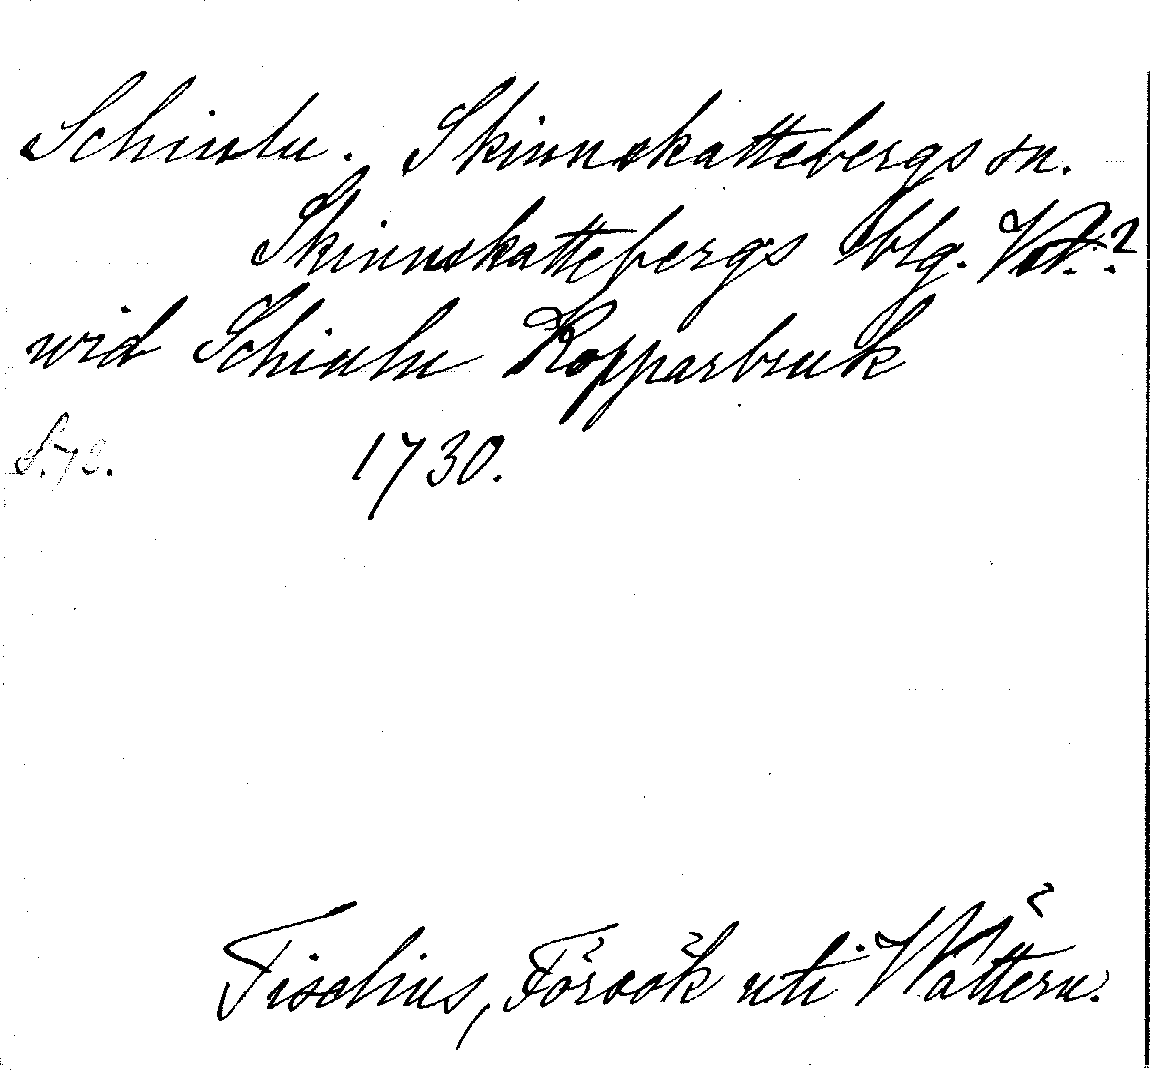 Schisshu. Skinnskattebergs sn.
Skinnskattebergs blg. Vstm.?
wid Schisshu Kopparbruk
S. 72. 1730.
Tischius, Försök uti Wättern.